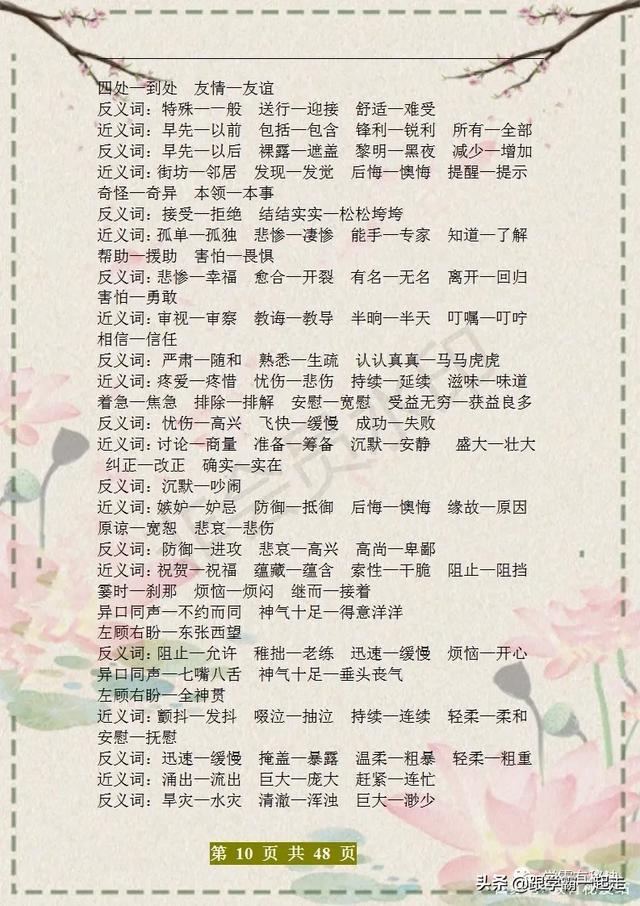 四处一到处 友情一友谊
反义词：特殊一一般 送行一迎接 舒适一难受
近义词：早先一以前 包括一包含 锋利一锐利 所有一全部
反义词：早先一以后 裸露一遮盖 黎明一黑夜 减少一增加
近义词：街坊一邻居 发现一发觉 后悔一懊悔 提醒一提示
奇怪一奇异 本领一本事
反义词：接受一拒绝 结结实实一松松垮垮
近义词：孤单一孤独 悲惨一凄惨 能手一专家 知道一了解
帮助一援助 害怕一畏惧
反义词：悲惨一幸福 愈合一开裂 有名一无名 离开一回归
害怕一勇敢
近义词：审视一审察 教诲一教导 半晌一半天 叮嘱一叮咛
相信一信任
反义词：严肃一随和 熟悉一生疏 认认真真一马马虎虎
近义词：疼爱一疼惜 忧伤一悲伤 持续一延续 滋味一味道
着急一焦急 排除一排解 安慰一宽慰 受益无穷一获益良多
反义词：忧伤一高兴 飞快一缓慢 成功一失败
近义词：讨论一商量 准备一筹备 沉默一安静 盛大一壮大
纠正一改正 确实一实在
反义词：沉默一吵闹
近义词：嫉妒一妒忌 防御一抵御 后悔一懊悔 缘故一原因
原谅一宽恕 悲哀一悲伤
反义词：防御一进攻 悲哀一高兴 高尚一卑鄙
近义词：祝贺一祝福 蕴藏一蕴含 索性一干脆 阻止一阻挡
霎时一刹那 烦恼一烦闷 继而一接着
异口同声一不约而同 神气十足一得意洋洋
左顾右盼一东张西望
反义词：阻止一允许 稚拙一老练 迅速一缓慢 烦恼一开心
异口同声一七嘴八舌 神气十足一垂头丧气
左顾右盼一全神贯
近义词：颤抖一发抖 啜泣一抽泣 持续一连续 轻柔一柔和
安慰一抚慰
反义词：迅速一缓慢 掩盖一暴露 温柔一粗暴 轻柔一粗重
近义词：涌出一流出 巨大一庞大 赶紧一连忙
反义词：旱灾一水灾 清澈一浑浊 巨大一渺少
第 10 页 共 48 页
头条 @跟学霸一起走